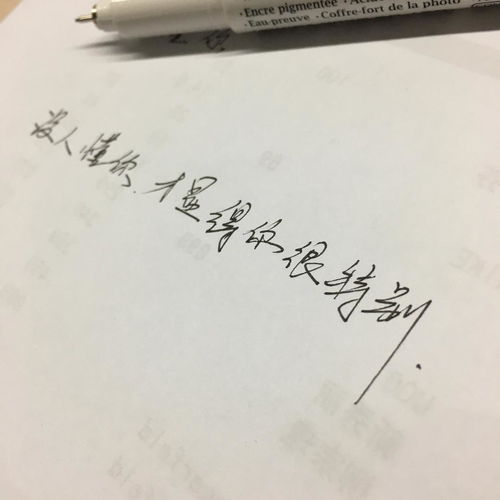 Encre pigmentée · Acid
· Eau-preuve · Coffre-fort de la photo
没人懂你.才显得你很特别.